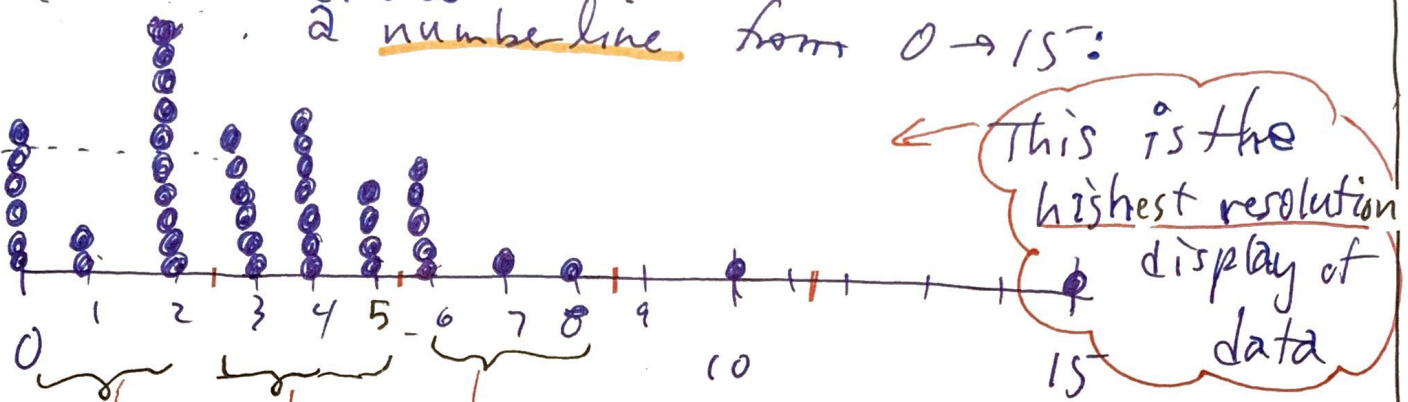 a number line from 0 → 15:
This is the
highest resolution
display of
data
0 1 2 3 4 5 6 7 8 9 10 15